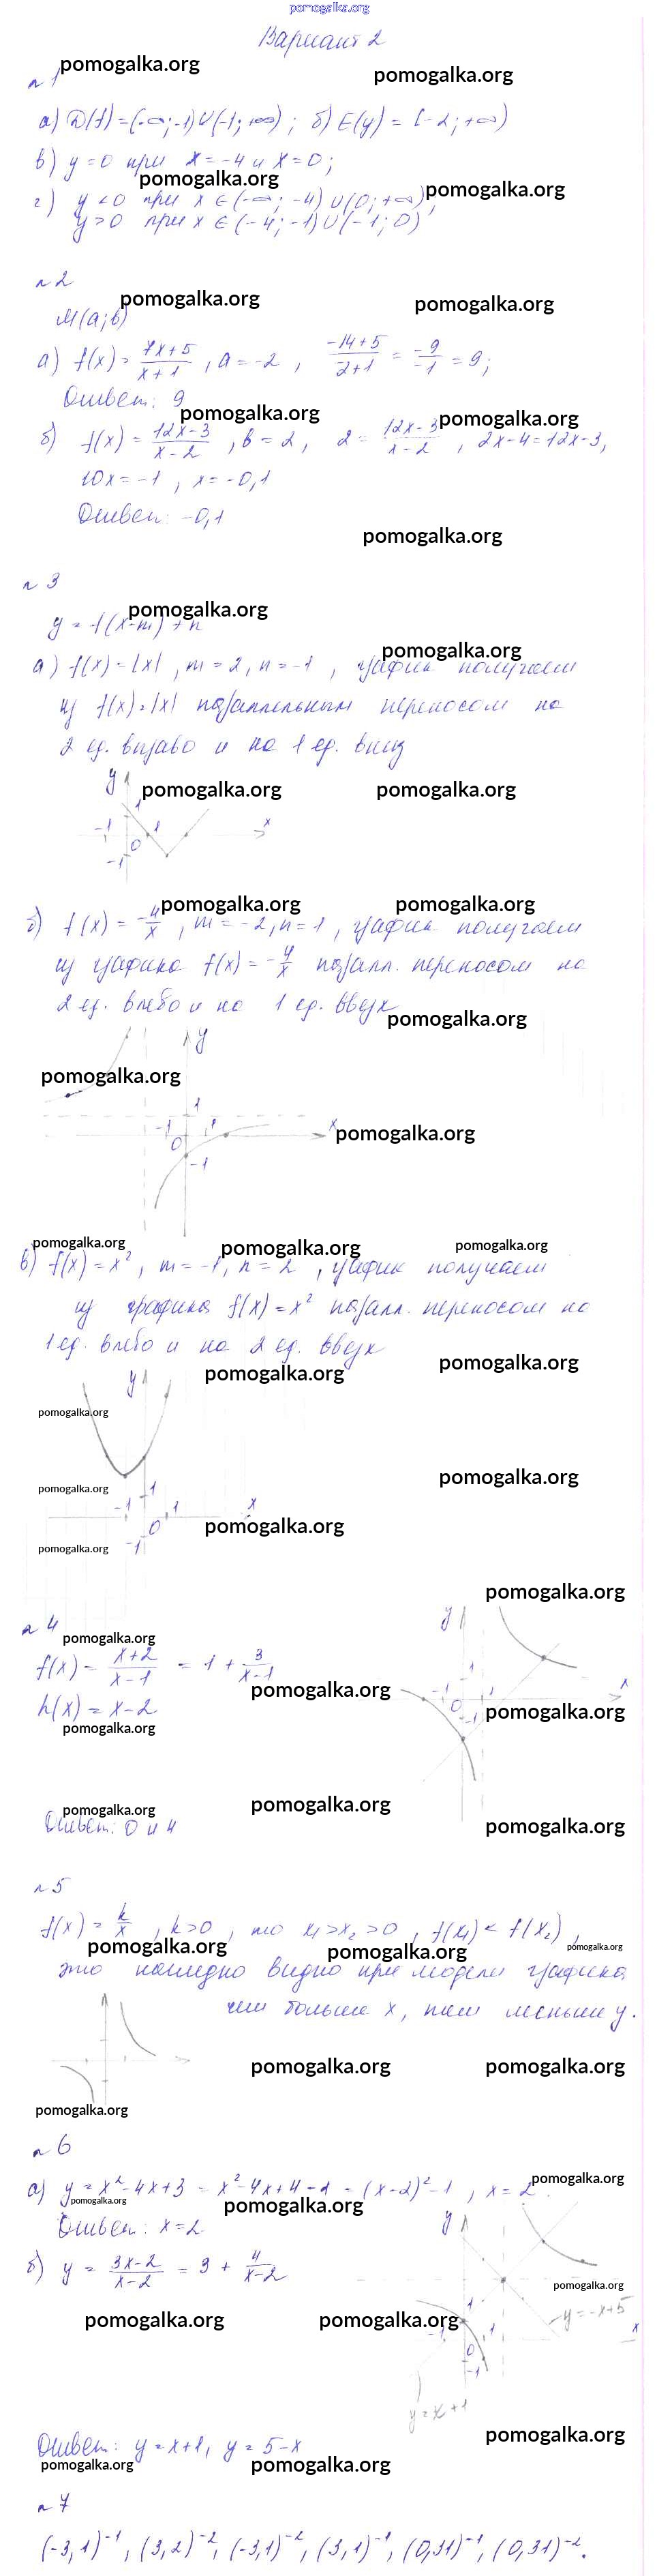 pomogalka.org
Вариант 2
pomogalka.org
n 1
pomogalka.org
а) D(f) = (-∞; -1) U (-1; +∞) ; б) E(y) = [-2; +∞)
в) y = 0 при x = -4 и x = 0 ;
pomogalka.org
pomogalka.org
г) y < 0 при x ∈ (-∞; -4) U (0; +∞) ;
y > 0 при x ∈ (-4; -1) U (-1; 0)
n 2
pomogalka.org
pomogalka.org
M(a; b)
а) f(x) = (7x+5)/(x+1) , a = -2 , (-14+5)/(-2+1) = -9/-1 = 9 ;
Ответ: 9
pomogalka.org
pomogalka.org
б) f(x) = (12x-3)/(x-2) , b = 2 , 2 = (12x-3)/(x-2) , 2x-4 = 12x-3,
10x = -1 , x = -0,1
Ответ: -0,1
pomogalka.org
n 3
pomogalka.org
y = f(x-m) + n
pomogalka.org
а) f(x) = |x| , m = 2, n = -1 , график получаем
из f(x) = |x| параллельным переносом на
2 ед. вправо и на 1 ед. вниз
y
pomogalka.org
pomogalka.org
1
-1 0 1 x
-1
pomogalka.org
pomogalka.org
б) f(x) = -4/x , m = -2, n = 1 , график получаем
из графика f(x) = -4/x паралл. переносом на
2 ед. влево и на 1 ед. вверх
pomogalka.org
y
pomogalka.org
1
-1 0 1 x
pomogalka.org
-1
pomogalka.org
pomogalka.org
pomogalka.org
в) f(x) = x² , m = -1, n = 2 , график получаем
из графика f(x) = x² паралл. переносом на
1 ед. влево и на 2 ед. вверх
pomogalka.org
pomogalka.org
y
pomogalka.org
pomogalka.org
pomogalka.org
1
-1 0 1 x
pomogalka.org
pomogalka.org
-1
pomogalka.org
n 4
y
pomogalka.org
f(x) = (x+2)/(x-1) = 1 + 3/(x-1)
pomogalka.org
1
-1 0 1 x
-1
h(x) = x-2
pomogalka.org
pomogalka.org
pomogalka.org
pomogalka.org
Ответ: 0 и 4
pomogalka.org
n 5
f(x) = k/x , k > 0 , то x₁ > x₂ > 0 , f(x₁) < f(x₂) ,
pomogalka.org
pomogalka.org
pomogalka.org
это наглядно видно при модели графика
чем больше x, тем меньше y.
pomogalka.org
pomogalka.org
pomogalka.org
n 6
pomogalka.org
а) y = x² - 4x + 3 = x² - 4x + 4 - 1 = (x-2)² - 1 , x = 2 .
pomogalka.org
pomogalka.org
Ответ: x = 2
y
б) y = (3x-2)/(x-2) = 3 + 4/(x-2)
pomogalka.org
pomogalka.org
pomogalka.org
y = -x+5
1
-1 0 1 x
-1
y = x+1
pomogalka.org
Ответ: y = x+1, y = 5-x
pomogalka.org
pomogalka.org
n 7
(-3,1)⁻¹, (3,2)⁻², (-3,1)⁻², (3,1)⁻¹, (0,31)⁻¹, (0,31)⁻².